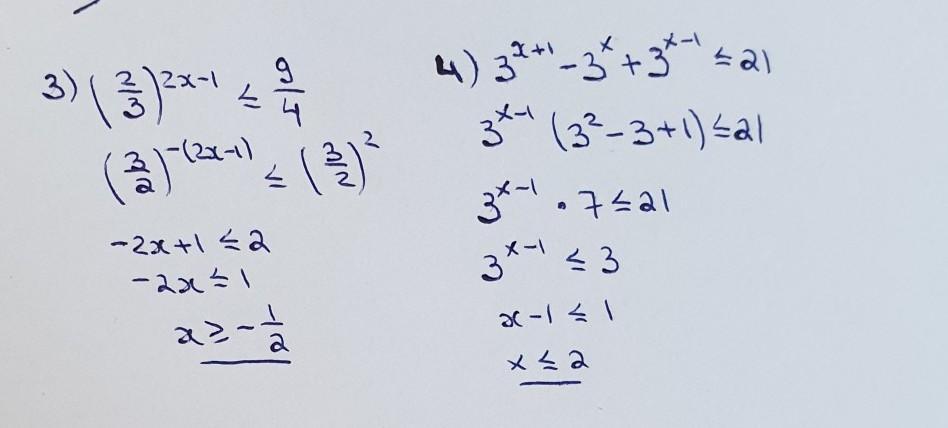 3) (2/3)^(2x-1) ≤ 9/4
(3/2)^(-(2x-1)) ≤ (3/2)^2
-2x+1 ≤ 2
-2x ≤ 1
x ≥ -1/2
4) 3^(x+1) - 3^x + 3^(x-1) ≤ 21
3^(x-1) (3^2 - 3 + 1) ≤ 21
3^(x-1) · 7 ≤ 21
3^(x-1) ≤ 3
x-1 ≤ 1
x ≤ 2